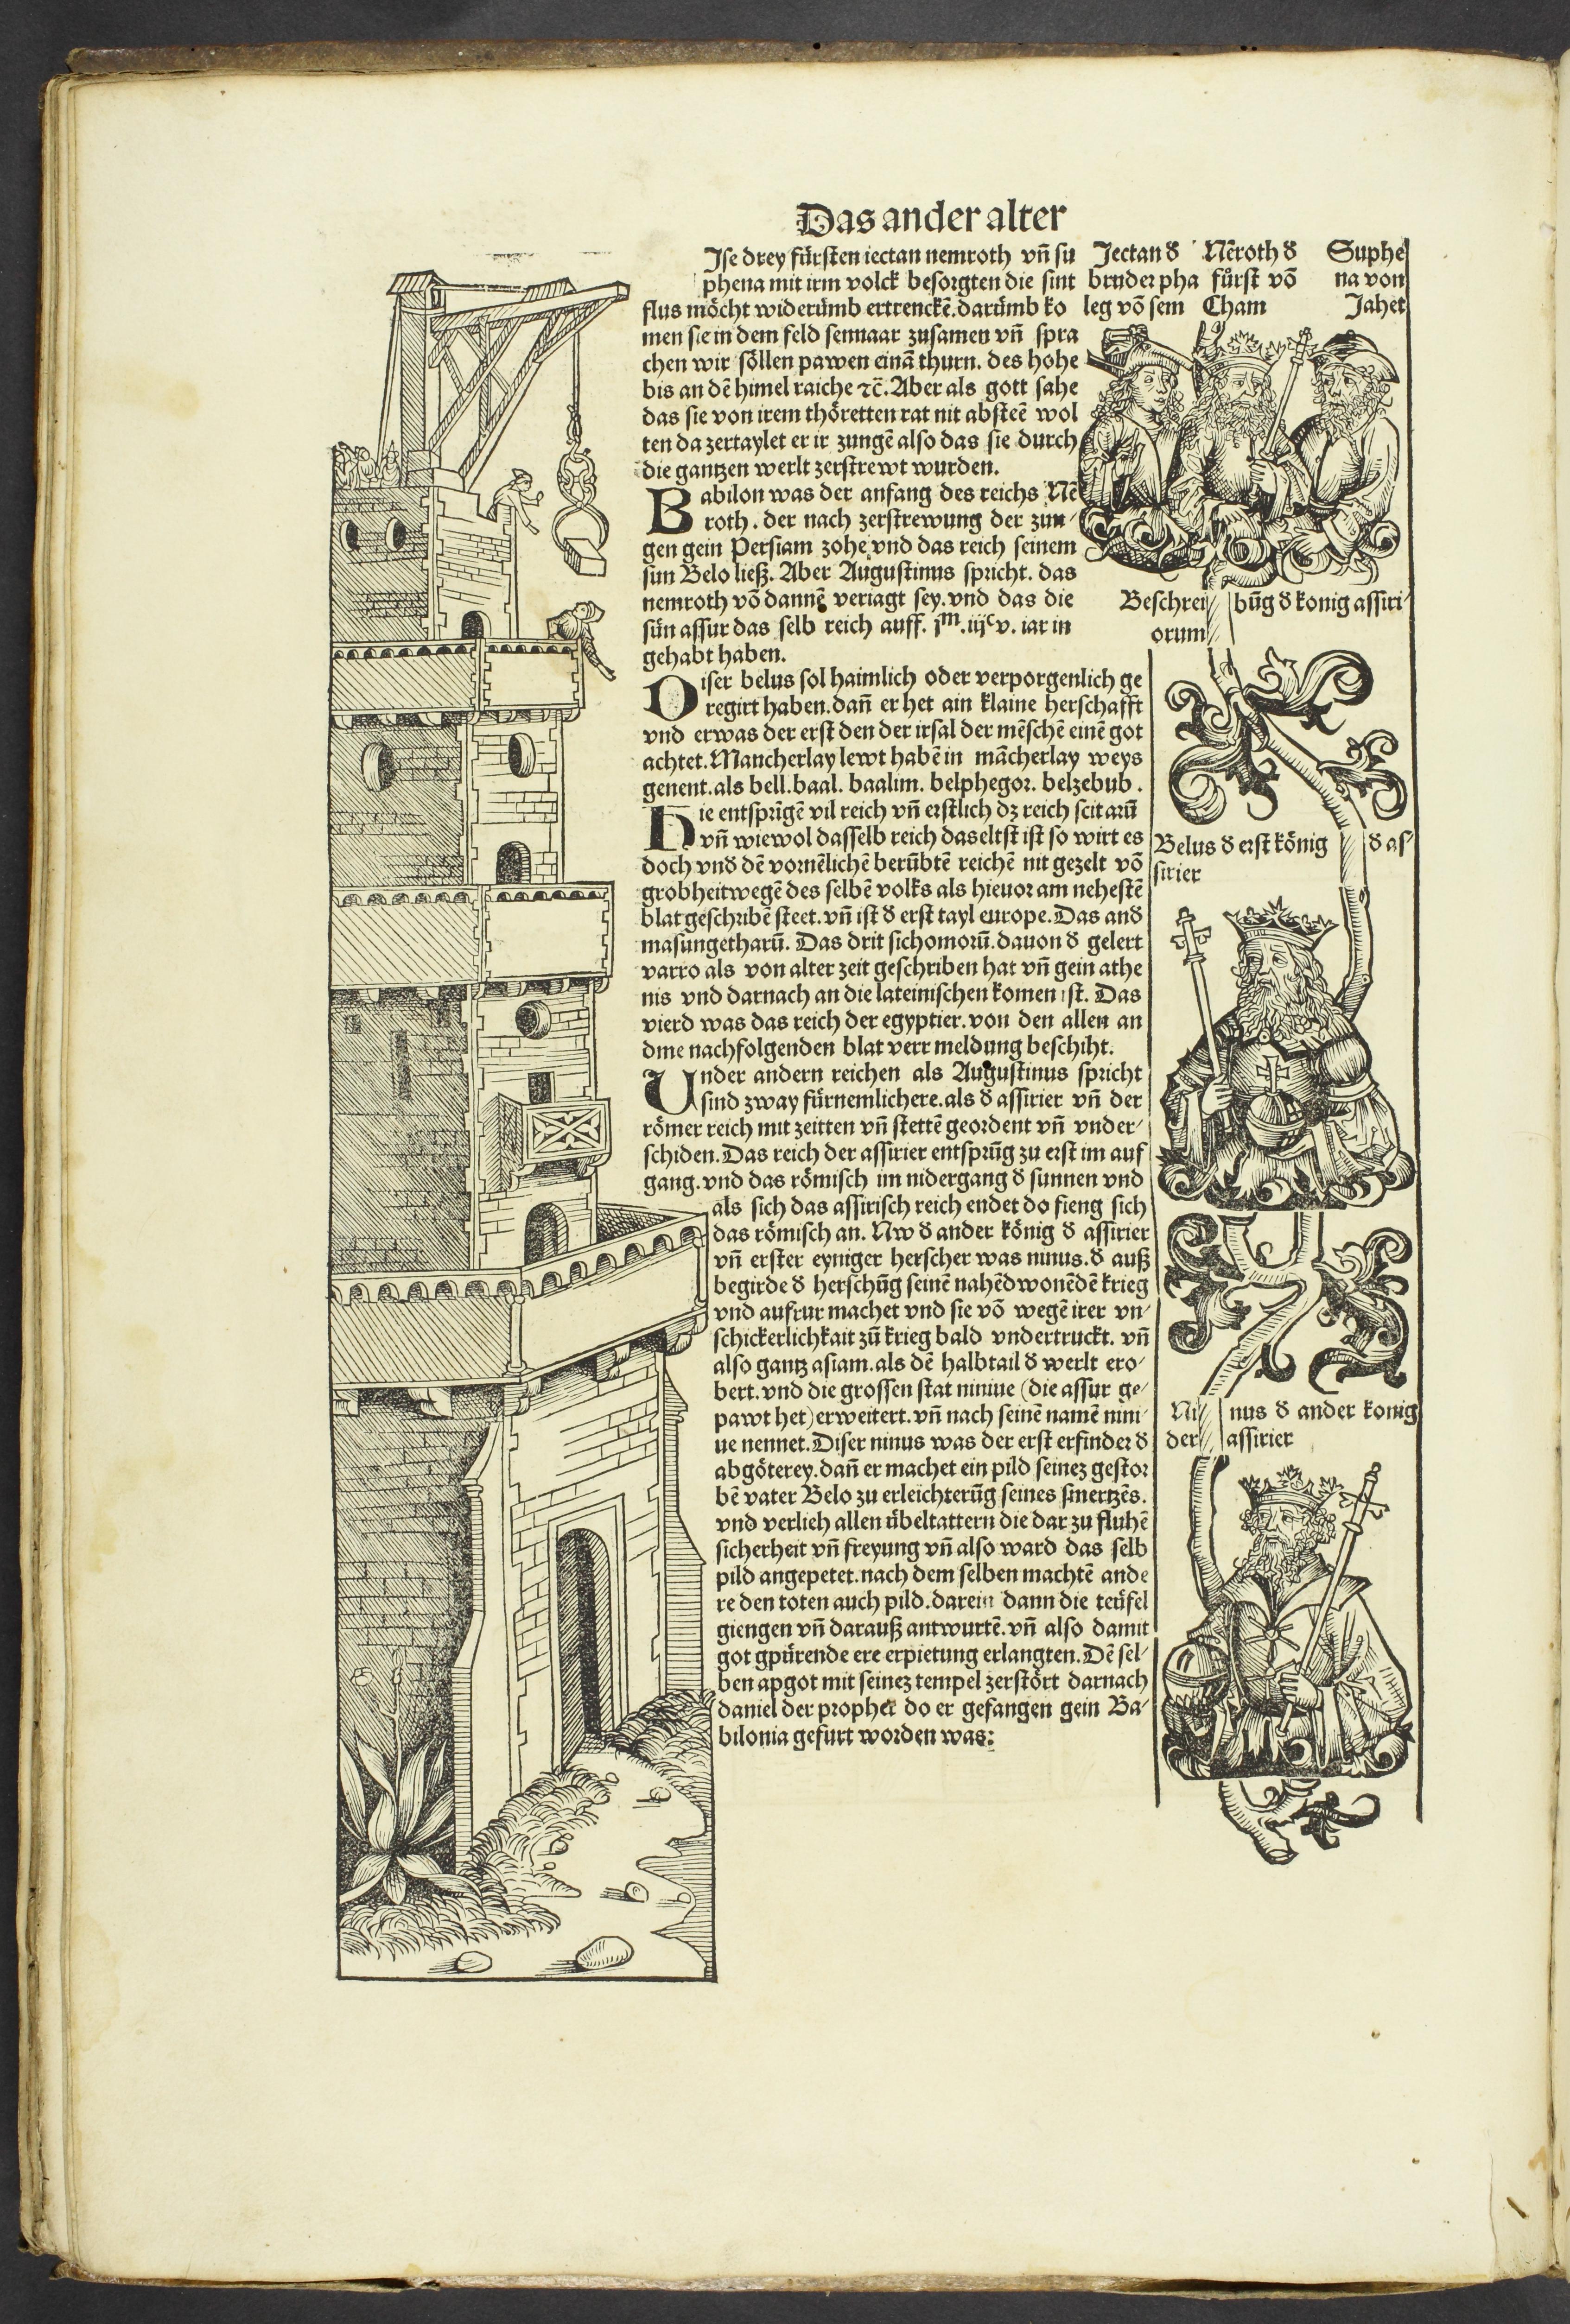 Das ander alter
Jse drey fürsten iectan nemroth vñ su
phena mit irm volck besorgten die sint
flus möcht widerümb ertrenckē. darümb ko
men sie in dem feld sennaar zusamen vñ spra
chen wir söllen pawen einā thurn. des hohe
bis an dē himel raiche ⁊c̄. Aber als gott sahe
das sie von irem thöretten rat nit absteē wol
ten da zertaylet er ir zungē also das sie durch
die gantzen werlt zerstrewt wurden.
Babilon was der anfang des reichs Nē
roth. der nach zerstrewung der zun-
gen gein Persiam zohe vnd das reich seinem
sun Belo ließ. Aber Augustinus spricht. das
nemroth vō dannē veriagt sey. vnd das die
sün assur das selb reich auff. jᵐ. iijᶜ v. iar in
gehabt haben.
Diser belus sol haimlich oder verporgenlich ge
regirt haben. dañ er het ain klaine herschafft
vnd er was der erst den der irsal der mēschē einē got
achtet. Mancherlay lewt habē in mācherlay weys
genent. als bell. baal. baalim. belphegor. belzebub.
Hie entsprīgē vil reich vñ erstlich dz reich scitarū
vñ wiewol dasselb reich das eltst ist so wirt es
doch vnđ dē vornēlichē berūbtē reichē nit gezelt vō
grobheit wegē des selbē volks als hieuor am nehestē
blat geschribē steet. vñ ist đ erst tayl europe. Das anđ
masungetharū. Das drit sichomorū. dauon đ gelert
varro als von alter zeit geschriben hat vñ gein athe
nis vnd darnach an die lateinischen komen ist. Das
vierd was das reich der egyptier. von den allen an
dme nachfolgenden blat verr meldung beschiht.
Under andern reichen als Augustinus spricht
sind zway fürnemlichere. als đ assirier vñ der
römer reich mit zeitten vñ stettē geordent vñ vnder-
schiden. Das reich der assirier entsprūg zu erst im auf
gang. vnd das römisch im nidergang đ sunnen vnd
als sich das assirisch reich endet do fieng sich
das römisch an. Nw đ ander könig đ assirier
vñ erster eyniger herscher was ninus. đ auß
begirde đ herschūg seinē nahēdwonēdē krieg
vnd aufrur machet vnd sie vō wegē irer vn-
schickerlichkait zū krieg bald vndertruckt. vñ
also gantz asiam. als dē halbtail đ werlt ero-
bert. vnd die grossen stat niniue (die assur ge-
pawt het) erweitert. vñ nach seinē namē nini-
ue nennet. Diser ninus was der erst erfinder đ
abgöterey. dañ er machet ein pild seinez gestor
bē vater Belo zu erleichterūg seines smertzēs.
vnd verlieh allen übeltattern die dar zu fluhē
sicherheit vñ freyung vñ also ward das selb
pild angepetet. nach dem selben machtē ande
re den toten auch pild. darein dann die teüfel
giengen vñ darauß antwurtē. vñ also damit
got gpürende ere erpietung erlangten. Dē sel-
ben apgot mit seinez tempel zerstört darnach
daniel der prophet do er gefangen gein Ba-
bilonia gefurt worden was:
Jectan đ
bruder pha
leg vō sem
Nēroth đ
fürst vō
Cham
Suphe
na von
Jahet
Beschreibūg đ konig assiri-
orum
Belus đ erst könig đ as-
sirier
Ninus đ ander konig
der assirier